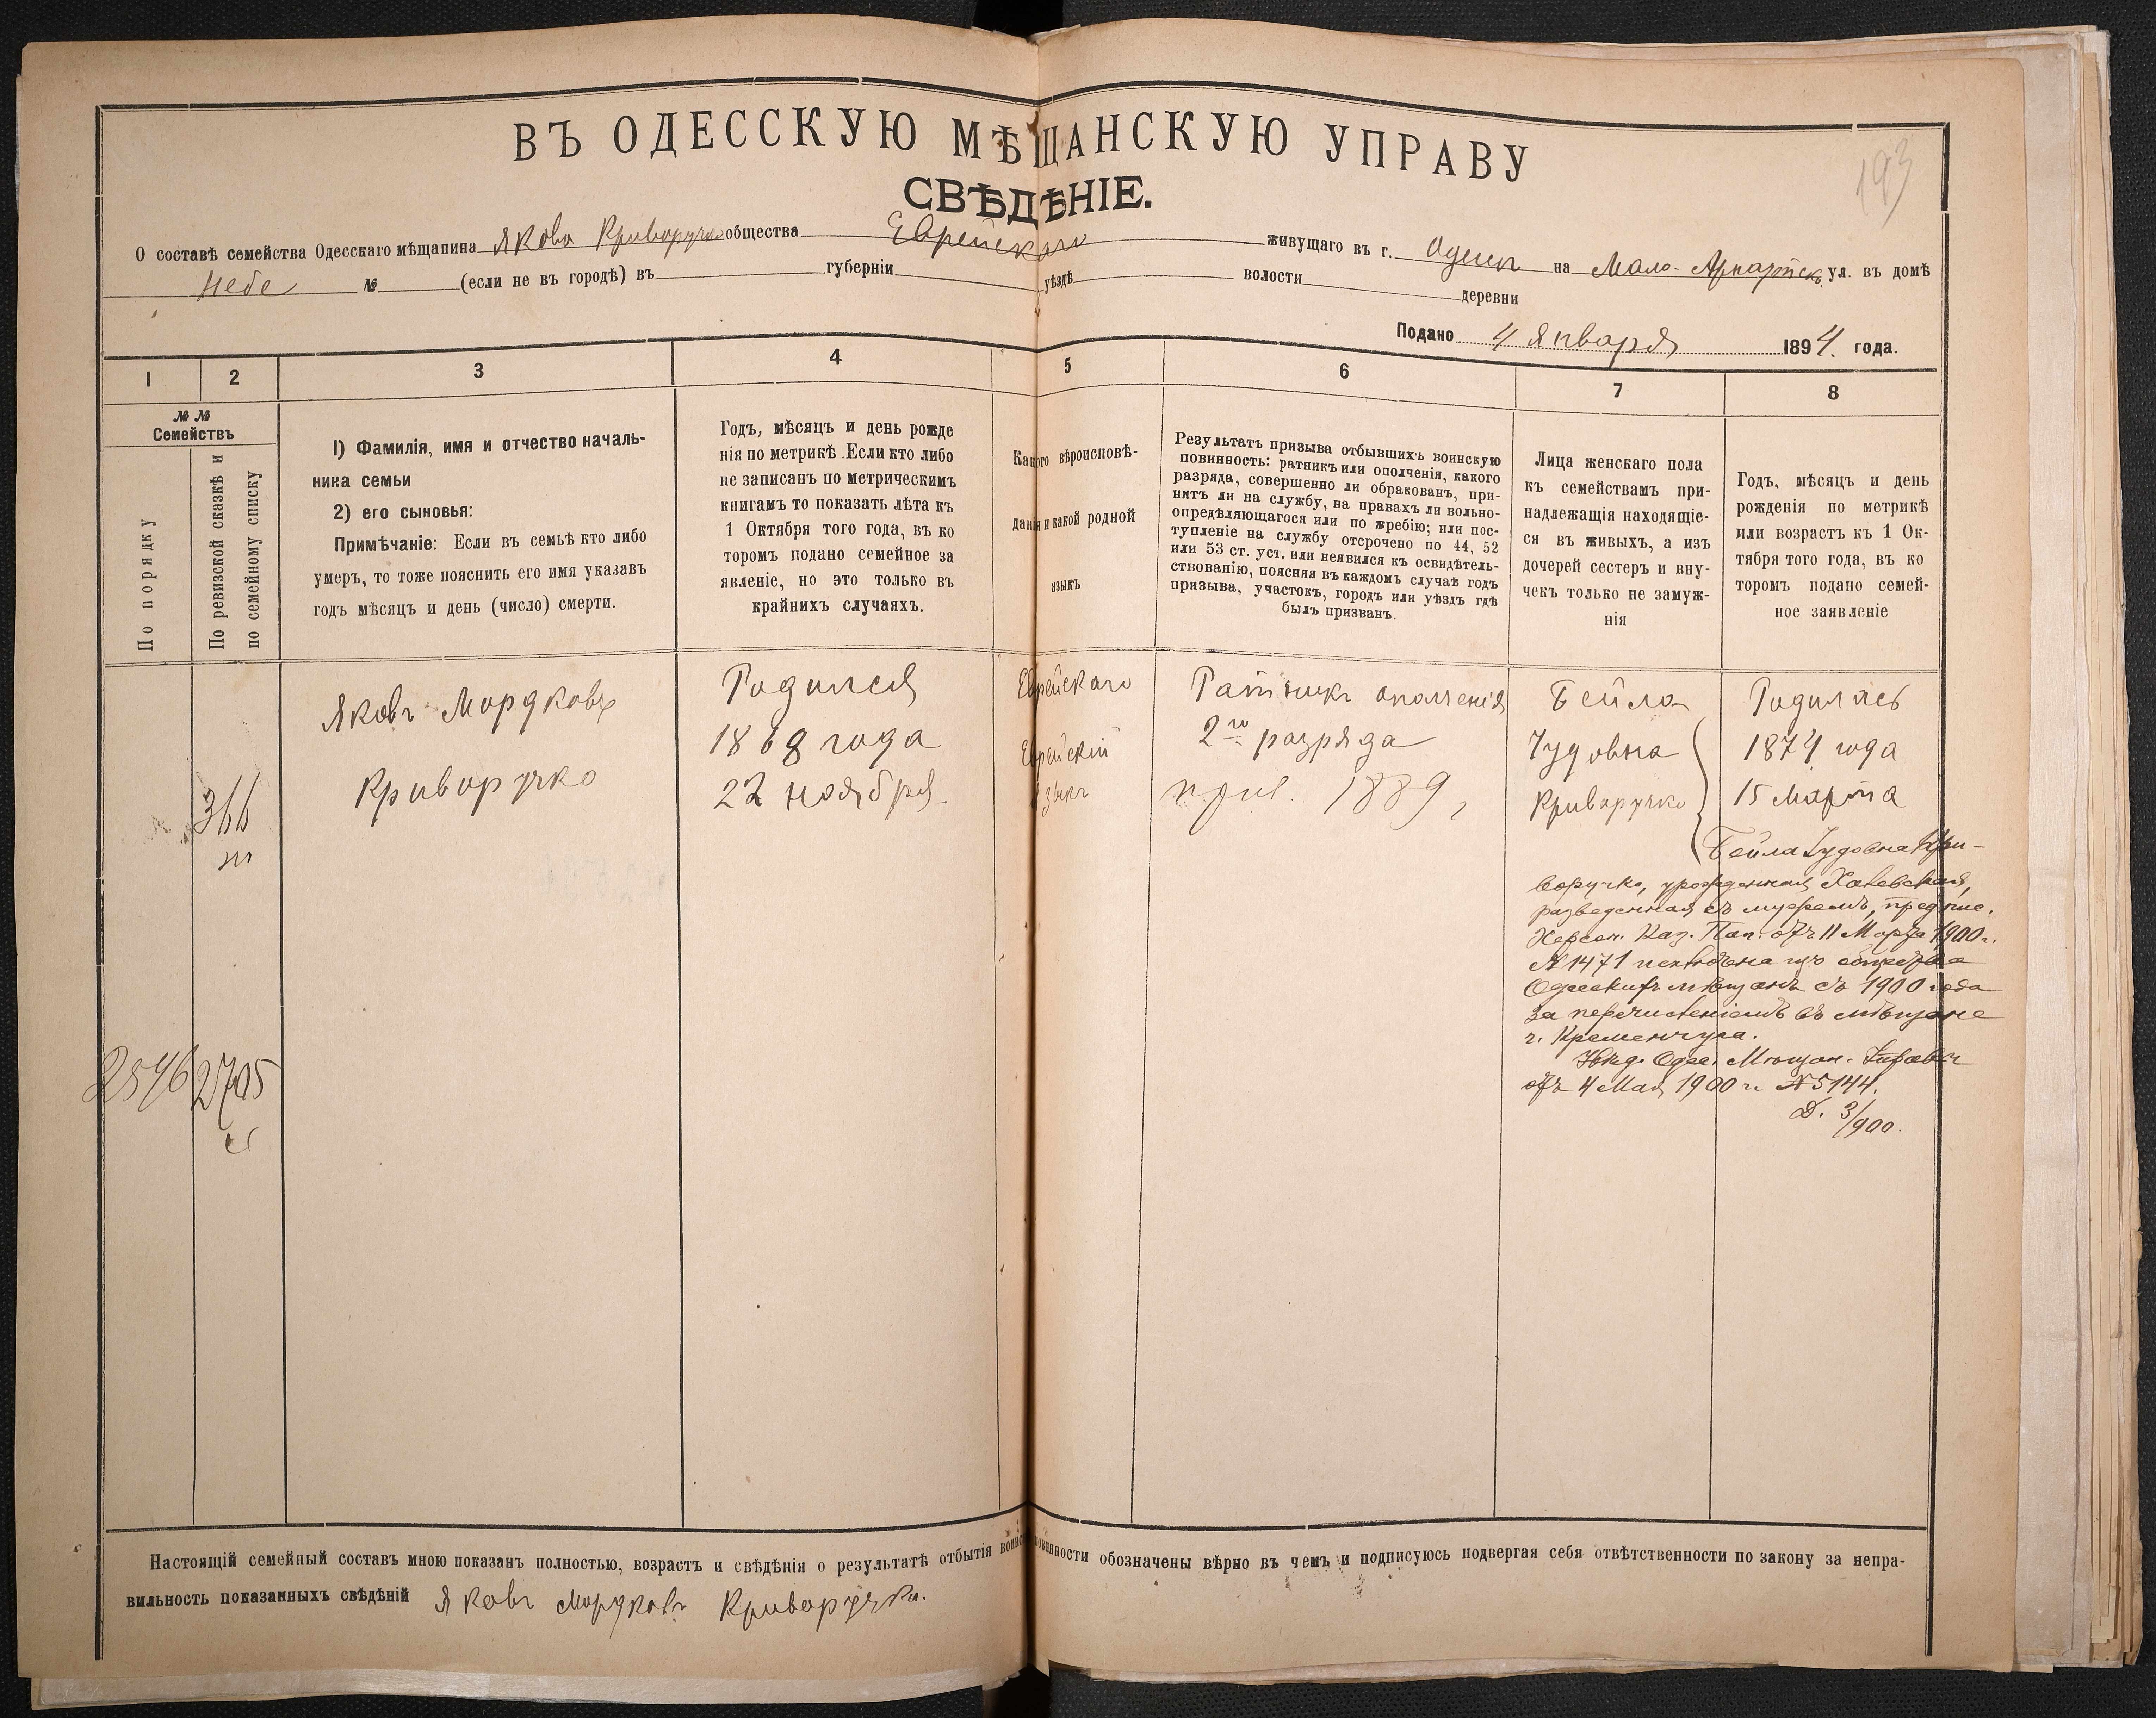 193
ВЪ ОДЕССКУЮ МѢЩАНСКУЮ УПРАВУ
СВѢДѢНІЕ.
О составѣ семейства Одесскаго мѣщанина Якова Криворучко общества Еврейскаго живущаго въ г. Одессѣ на Мало-Арнаутск. ул. въ домѣ
№ (если не въ городѣ) въ губерніи уѣздѣ волости деревни
Подано 4 Января 1894. года.
1 2 3 4 5 6 7 8
№ № Семействъ
По порядку
По ревизской сказкѣ и
по семейному списку
1) Фамилія, имя и отчество началь-
ника семьи
2) его сыновья:
Примѣчаніе: Если въ семьѣ кто либо
умеръ, то тоже пояснить его имя указавъ
годъ мѣсяцъ и день (число) смерти.
Годъ, мѣсяцъ и день рожде
нія по метрикѣ. Если кто либо
не записанъ по метрическимъ
книгамъ то показать лѣта къ
1 Октября того года, въ ко
торомъ подано семейное за
явленіе, но это только въ
крайнихъ случаяхъ.
Какого вѣроисповѣ-
данія и какой родной
языкъ
Результатъ призыва отбывшихъ воинскую
повинность: ратникъ или ополченія, какого
разряда, совершенно ли обракованъ, при-
нятъ ли на службу, на правахъ ли вольно-
опредѣляющагося или по жребію; или пос-
тупленіе на службу отсрочено по 44, 52
или 53 ст. уст. или неявился къ освидѣтель-
ствованію, поясняя въ каждомъ случаѣ годъ
призыва, участокъ, городъ или уѣздъ гдѣ
былъ призванъ.
Лица женскаго пола
къ семействамъ при-
надлежащія находящіе-
ся въ живыхъ, а изъ
дочерей сестеръ и вну-
чекъ только не замуж-
нія
Годъ, мѣсяцъ и день
рожденія по метрикѣ
или возрастъ къ 1 Ок-
тября того года, въ ко
торомъ подано семей-
ное заявленіе
366
2546
2705
Яковъ Мордковъ
Криворучко
Родился
1868 года
22 ноября.
Еврейскаго
Еврейскій
языкъ
Ратникъ ополченія
2го разряда
приз. 1889,
Бейла
Іудовна
Криворучко
Родилась
1874 года
15 Марта
Бейла Іудовна Кри-
воручко, урожденная
разведенная съ мужемъ, предпис.
Херсон. Каз. Пал. отъ 11 Марта 1900 г.
№ 1471 исключена изъ общества
Одесскихъ мѣщанъ съ 1900 года
за перечисленіемъ въ мѣщане
г. Кременчуга.
Одес. Мѣщан. Управы
отъ 4 Мая 1900 г. № 5144.
Д. 3/900.
Настоящій семейный составъ мною показанъ полностью, возрастъ и свѣдѣнія о результатѣ отбытія воинской повинности обозначены вѣрно въ чемъ и подписуюсь подвергая себя отвѣтственности по закону за непра-
вильность показанныхъ свѣдѣній Яковъ Мордковъ Криворучко.